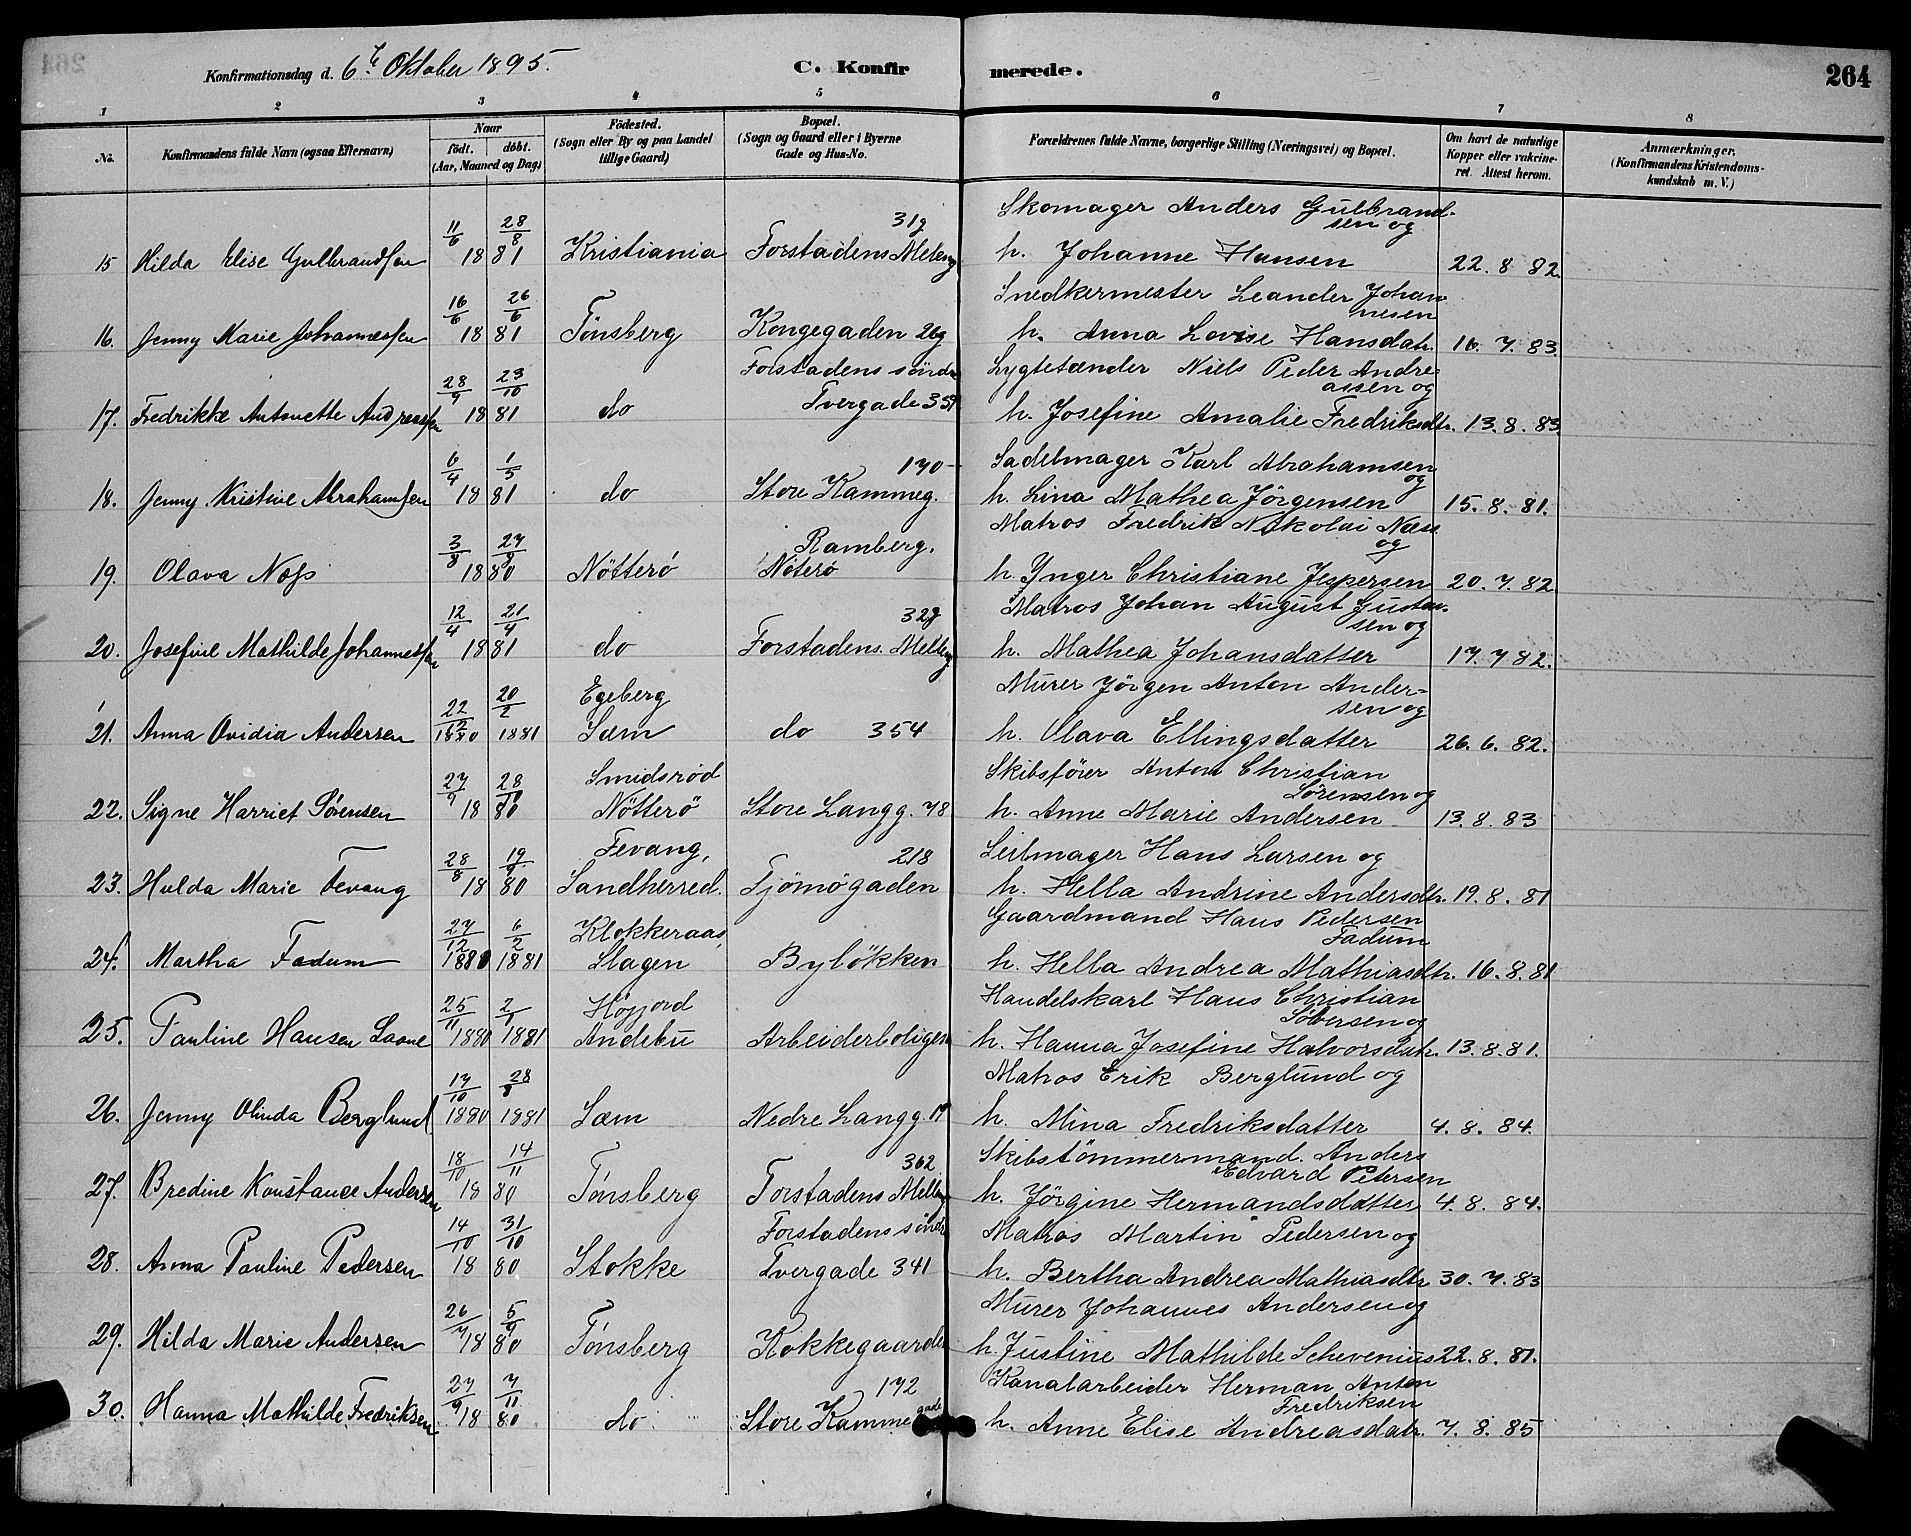 Konfirmationsdag d. 6te Oktober 1895. C. Konfirmerede. 264
1 2 3 4 5 6 7 8
No. Konfirmandens fulde Navn (ogsaa Efternavn) Naar født. døbt. (Aar, Maaned og Dag) Fødested. (Sogn eller By og paa Landet tillige Gaard) Bopæl. (Sogn og Gaard eller i Byerne Gade og Hus-No. Forældrenes fulde Navne, borgerlige Stilling (Næringsvei) og Bopæl. Om havt de naturlige Kopper eller vakcineret. Attest herom. Anmærkninger. (Konfirmandens Kristendomskundskab m. V.)
11/6 28/8 31g Skomager Anders Gulbrand-
sen og
15 Hilda Elise Gulbrandsen 18 81 Kristiania Forstadens Melleng h. Johanne Hansen 22. 8 82.
16/6 26/6 Snedkermester Leander Johan
nesen
16. Jenny Marie Johannessen 18 81 Tønsberg Kongegaden 26g h. Anna Lovise Hansdatr. 16. 7. 83.
28/9 23/10 Forstadens söndre Lygtetænder Niels Peder Andre=
assen og
17. Fredrikke Antonette Andreassen 18 81 do Tvergade 359 h. Josefine Amalie Fredriksdtr. 13. 8. 83.
6/4 1/5 170 Sadelmager Karl Abrahamsen
og
18. Jenny Kristine Abrahamsen 18 81 do Store Kammeg. h. Lina Mathea Jörgensen 15. 8. 81.
3/8 27/8 Ramberg. Matros Fredrik Nikolai Næss
og
19. Olava Næss 18 80 Nötterö Nöterö h Inger Christiane Jespersen 20. 7. 82.
12/4 21/4 32g Matros Johan August Gustav-
sen og
20. Josefine Mathilde Johannessen 18 81 do Forstadens. Melleng h. Mathea Johansdatter 17. 7 82.
22/12 20/2 Egeberg Murer Jörgen Anton Ander=
sen og
21. Anna Ovidia Andersen 1880 1881 Sæm do 354 h. Olava Ellingsdatter 26. 6. 82.
27/9 28/11 Smidsröd Skibsförer Anton Christian
Sörensen og
22. Signe Harriet Sörensen 18 80 Nötterö Store Langg. 78 h. Anne Marie Andersen 13. 8. 83
28/8 19/9 Fevang, 218 Seilmager Hans Larsen og
23. Hulda Marie Fevang 18 80 Sandherred. Tjömögaden h. Hella Andrine Andersdtr. 19. 8. 81
27/12 6/2 Klokkeraas, Gaardmand Hans Pedersen
Fadum
24. Martha Fadum 1880 1881 Slagen Bylökken h. Hella Andrea Mathiasdtr. 16. 8. 81
25/11 2/1 Höyjord Handelskarl Hans Christian
Sölversen og
25. Pauline Hansen Lasne 1880 1881 Andebu Arbeiderboligen h. Hanna Josefine Halvorsdatr. 13. 8. 81.
17/10 28/8 Matros Erik Berglund og
26. Jenny Olinda Berglund 1880 1881 Sæm Nedre Langg. 19 h. Mina Fredriksdatter 4. 8. 84.
18/10 14/11 362 Skibstömmermand. Anders
Edvard Petersen
27. Bredine Konstance Andersen 18 80 Tönsberg Forstadens Melleng h. Jörgine Hermandsdatter 4. 8. 84.
14/10 31/10 Forstadens söndre Matros Martin Pedersen og
28. Anna Pauline Pedersen 18 80 Stokke Tvergade 341 h. Bertha Andrea Mathiasdtr 30. 7. 83
26/7 5/9 Murer Johannes Andersen og
29. Hilda Marie Andersen 18 80 Tönsberg Kokkegaarden h. Justine Mathilde Schevenius 22. 8. 81.
27/9 7/11 172 Kanalarbeider Herman Anton
Fredriksen
30. Hanna Mathilde Fredriksen 18 80 do Store Kammegade h. Anne Elise Andreasdatr. 7. 8. 85